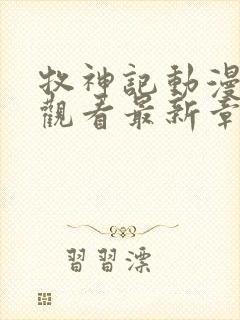 牧神記動漫
觀看最新章
習習漂